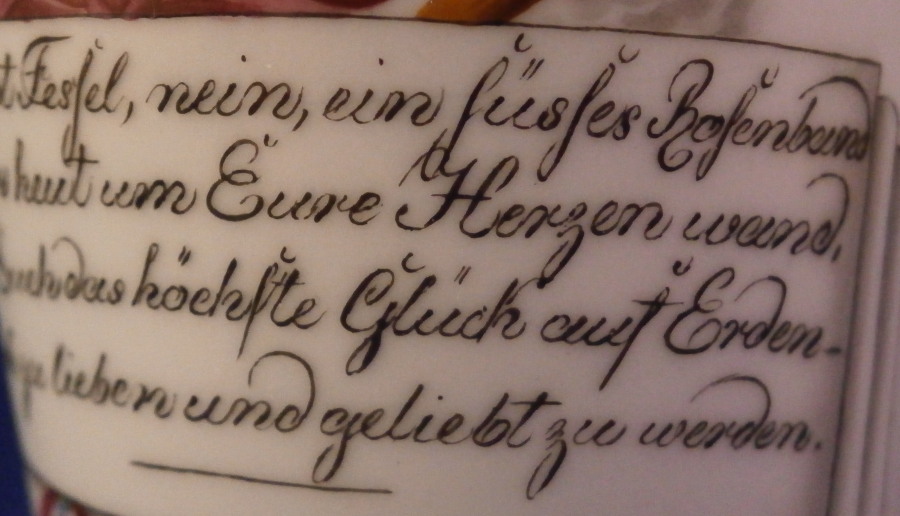 Fesſel, nein, ein ſüsſes Roſenband
heut um Eure Herzen wand,
Euch das höchſte Glück auf Erden-
lieben und geliebt zu werden.